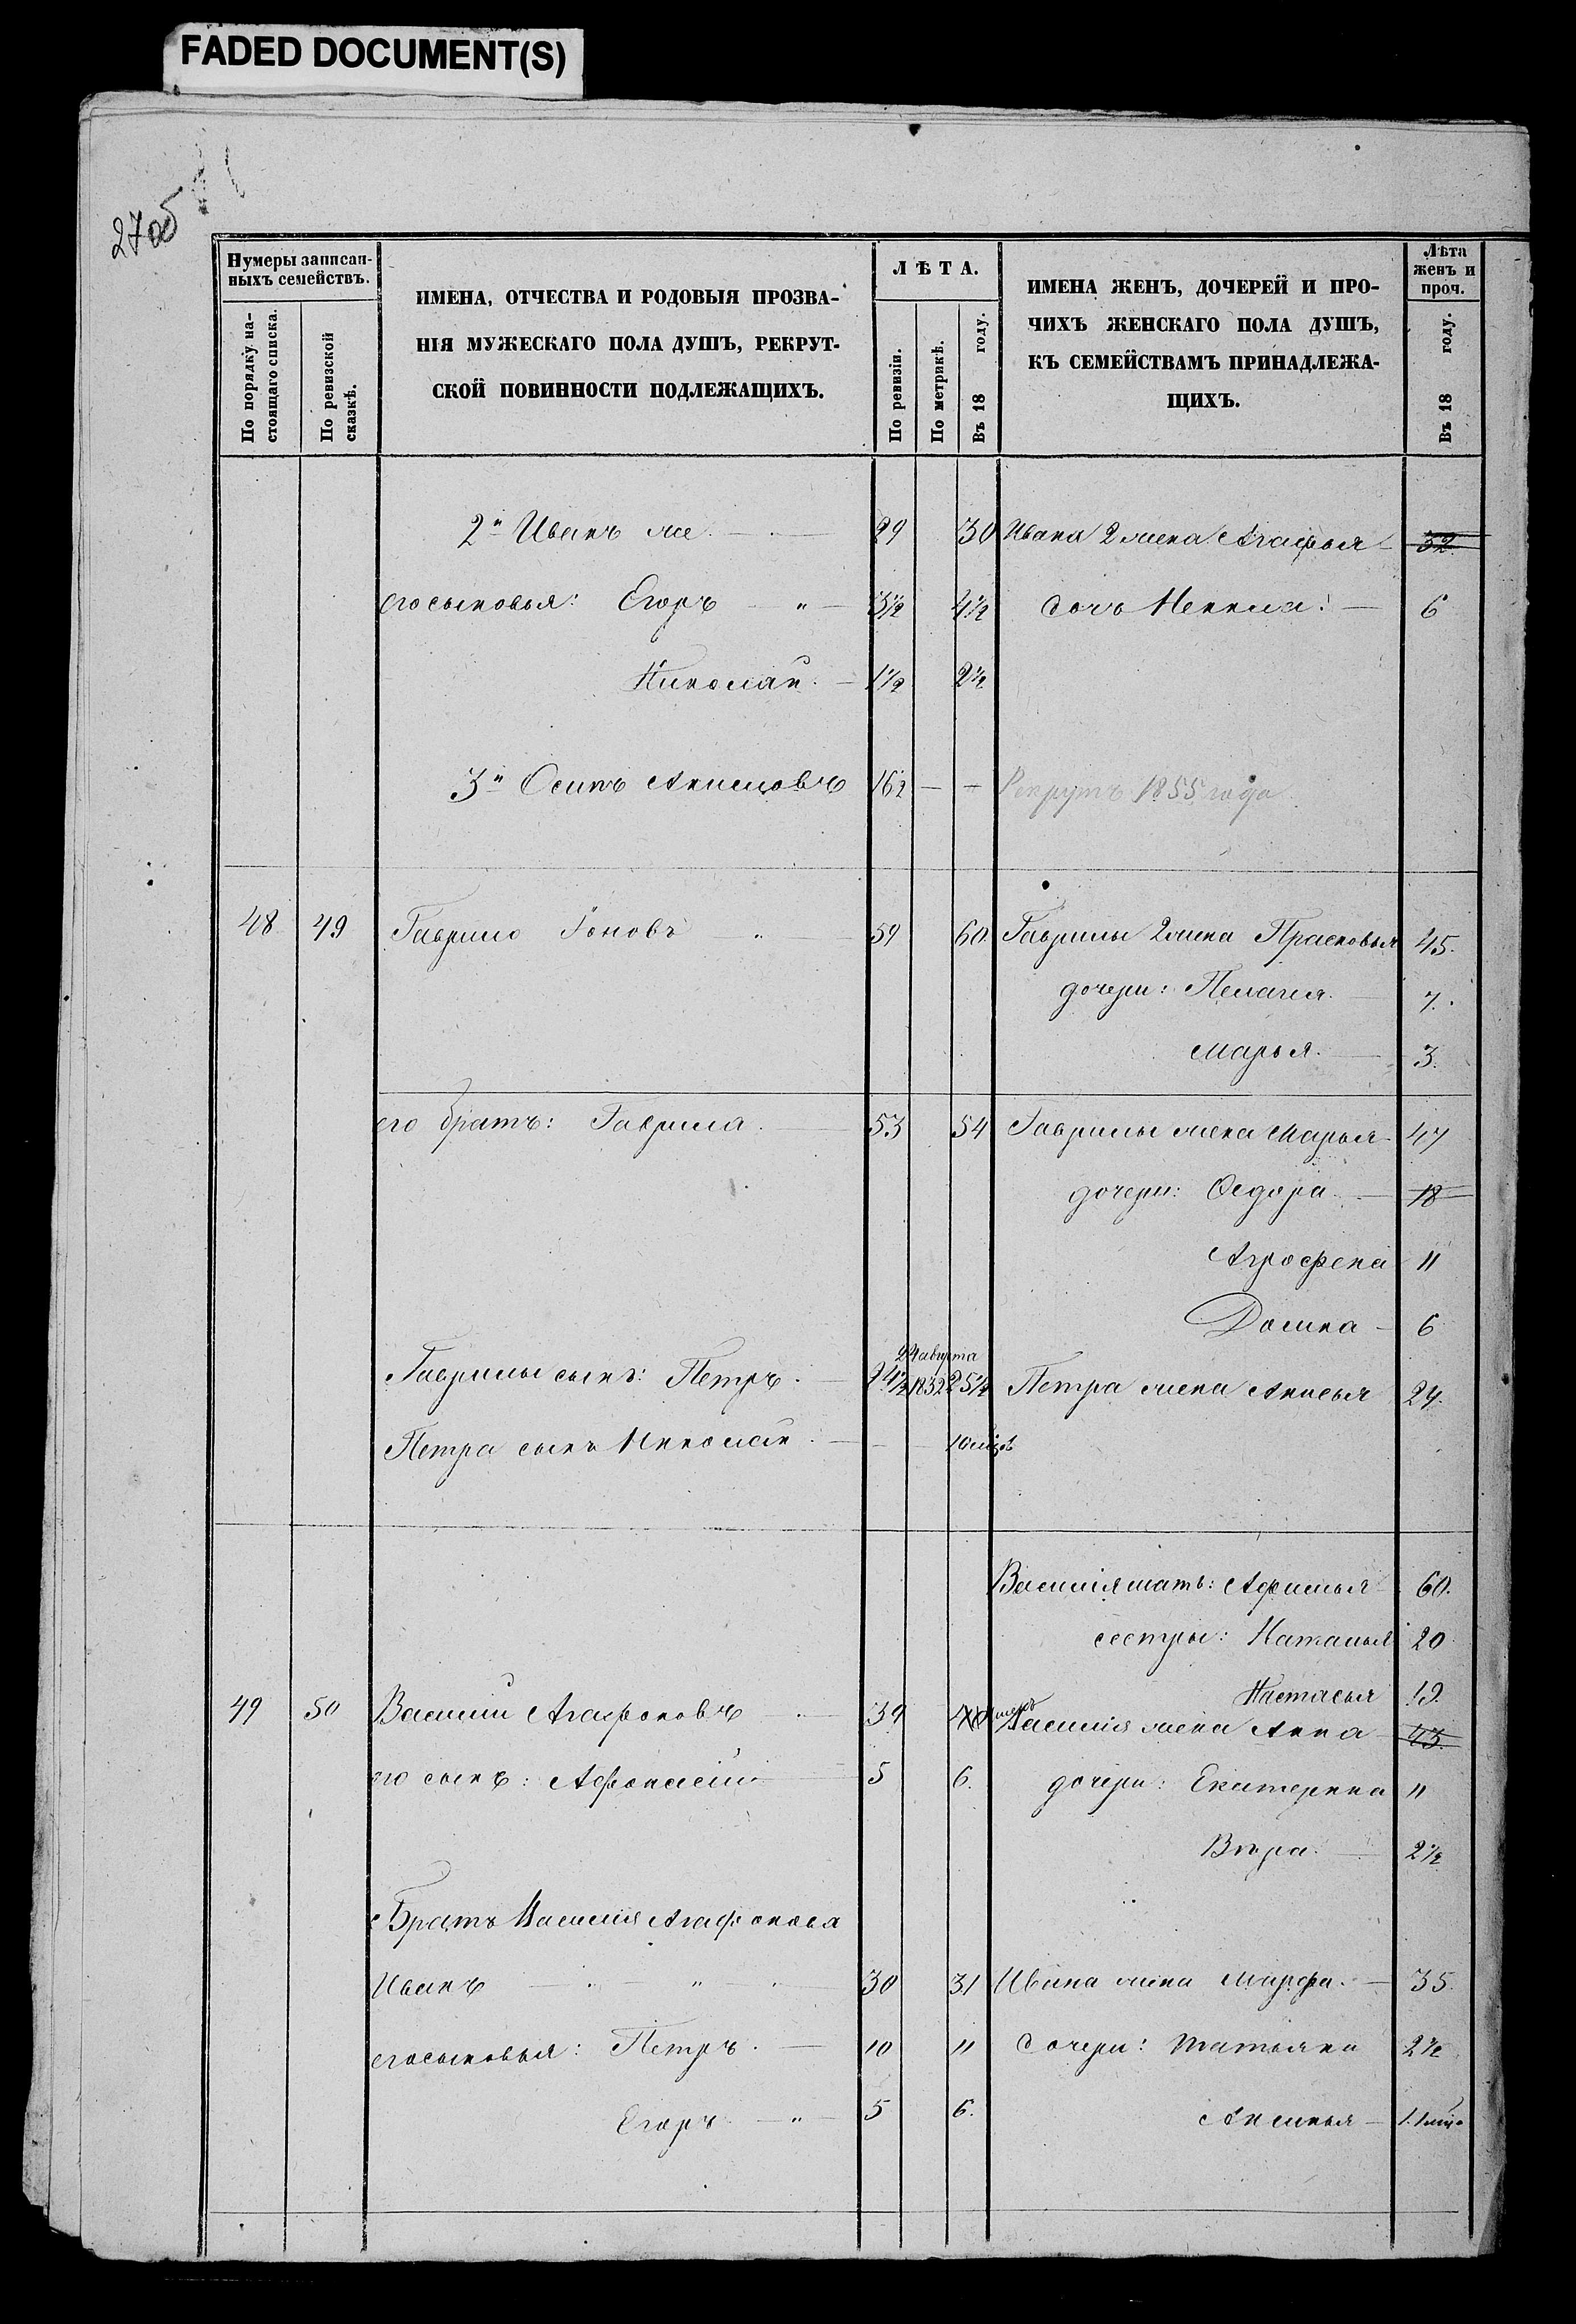 FADED DOCUMENT(S)
27об
Нумеры записан-
ныхъ семействъ.
По порядку на-
стоящаго списка.
По ревизской
сказкѣ.
ИМЕНА, ОТЧЕСТВА И РОДОВЫЯ ПРОЗВА-
НІЯ МУЖЕСКАГО ПОЛА ДУШЪ, РЕКРУТ-
СКОЙ ПОВИННОСТИ ПОДЛЕЖАЩИХЪ.
ЛѢТА.
По ревизіи.
По метрикѣ.
Въ 18 году.
ИМЕНА ЖЕНЪ, ДОЧЕРЕЙ И ПРО-
ЧИХЪ ЖЕНСКАГО ПОЛА ДУШЪ,
КЪ СЕМЕЙСТВАМЪ ПРИНАДЛЕЖА-
ЩИХЪ.
Лѣта
женъ и
проч.
Въ 18 году.
2й Иванъ же 29 30 Ивана 2 жена Агафья 32
его сыновья: Егоръ 3½ 4½ дочь 6
Николай 1½ 2½
3й Осипъ Акимовъ 16½ — — Рекрутъ 1855 года
48 49 Гаврило Іоновъ 59 60 Гаврилы 2 жена Прасковья 45.
дочери: Пелагея 7.
Марья 3.
его братъ: Гаврила 53 54 Гаврилы жена Марья 47
дочери: Ѳедора 18
Агрофена 11
Домна 6
24 августа
Гаврилы сынъ: Петръ 24½ 1832 25½ Петра жена Анисья 24.
Петра сынъ Николай — — 10 мѣс
Василія мать: Афимья 60.
сестры: Наталья 20
Настасья 19.
49 50 Василій Агафоновъ 39 40 Василія жена Анна 43
его сынъ: Афонасій 5 6. дочери: Екатерина 11
Вѣра 2½
Братъ Василія Агафонова
Иванъ 30 31 Ивана жена Марфа 35.
его сыновья: Петръ 10 11 дочери: Татьяна 2½
Егоръ 5 6. Аксинья